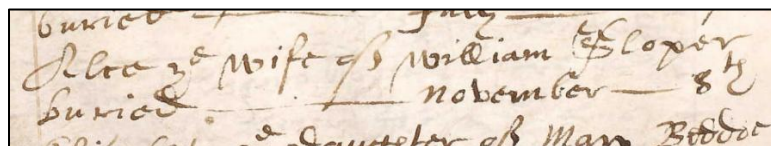 buried — July —
Alce ye wife of William Sloper
buried — November — 8th
ye daughter of Mary Beddoe